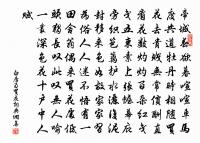 帝城春欲暮喧喧車馬
度共道牡丹時相隨買
花去貴賤無常價酬直
看花數灼灼百朵紅戔
戔五束素上張幄幕庇
旁織笆籬護水灑復泥
封移來色如故家家習
為俗人人迷不悟有一
田舍翁偶來買花處低
頭獨長嘆此嘆無人喻
一叢深色花十戶中人
賦